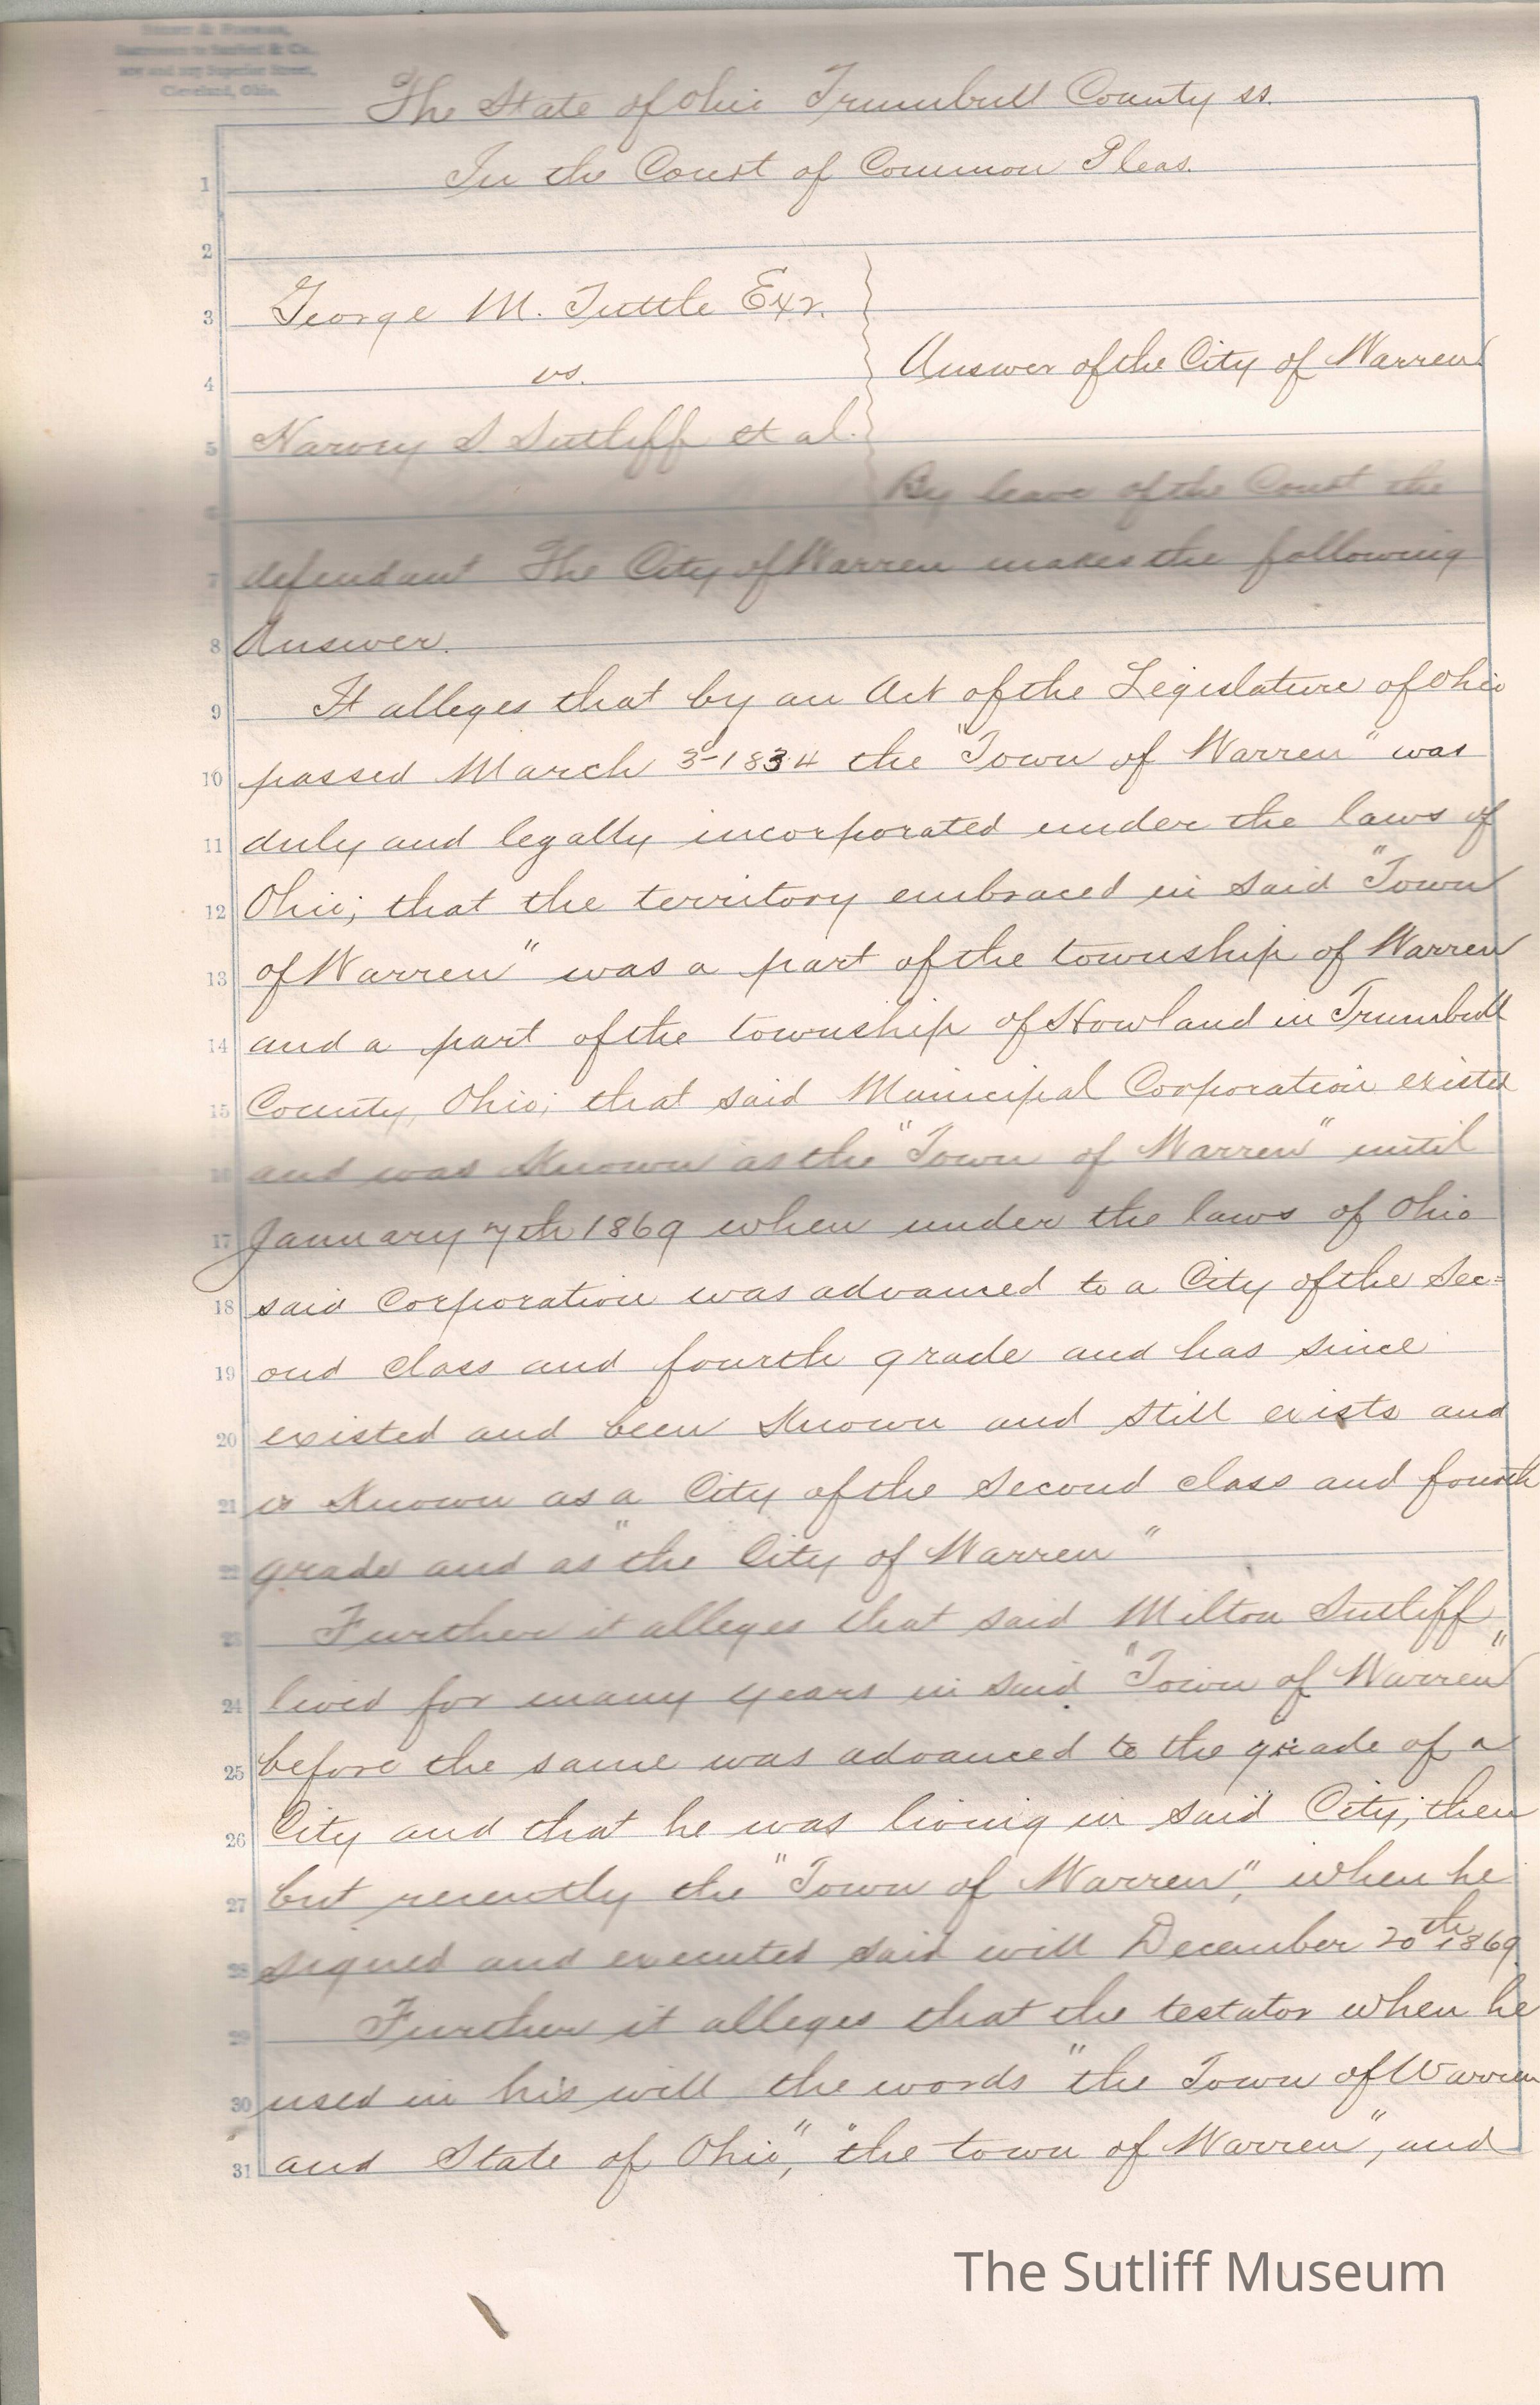 Successors to Sanford & Co.,
Superior Street,
Cleveland, Ohio.
The State of Ohio Trumbull County ss.
1 In the Court of Common Pleas.
2
3 George M. Tuttle Exr.
4 vs. Answer of the City of Warren
5 Harvey S. Sutliff et al.
6 By leave of the Court the
7 defendant The City of Warren makes the following
8 Answer.
9 It alleges that by an Act of the Legislature of Ohio
10 passed March 3-1834 the "Town of Warren" was
11 duly and legally incorporated under the laws of
12 Ohio; that the territory embraced in said "Town
13 of Warren" was a part of the township of Warren
14 and a part of the township of Howland in Trumbull
15 County, Ohio; that said Municipal Corporation existed
16 and was known as the "Town of Warren" until
17 January 7th 1869 when under the laws of Ohio
18 said Corporation was advanced to a City of the Sec=
19 ond class and fourth grade and has since
20 existed and been known and still exists and
21 is known as a City of the Second class and fourth
22 grade and as "the City of Warren"
23 Further it alleges that said Milton Sutliff
24 lived for many years in said "Town of Warren"
25 before the same was advanced to the grade of a
26 City and that he was living in said City; then
27 but recently the "Town of Warren", when he
28 signed and executed said will December 20th 1869.
29 Further it alleges that the testator when he
30 used in his will the words "the Town of Warren
31 and State of Ohio", "the town of Warren", and
The Sutliff Museum